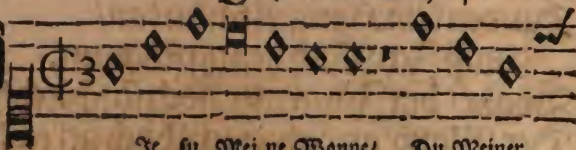 Je su Mei ne Wonne/ Du Meiner